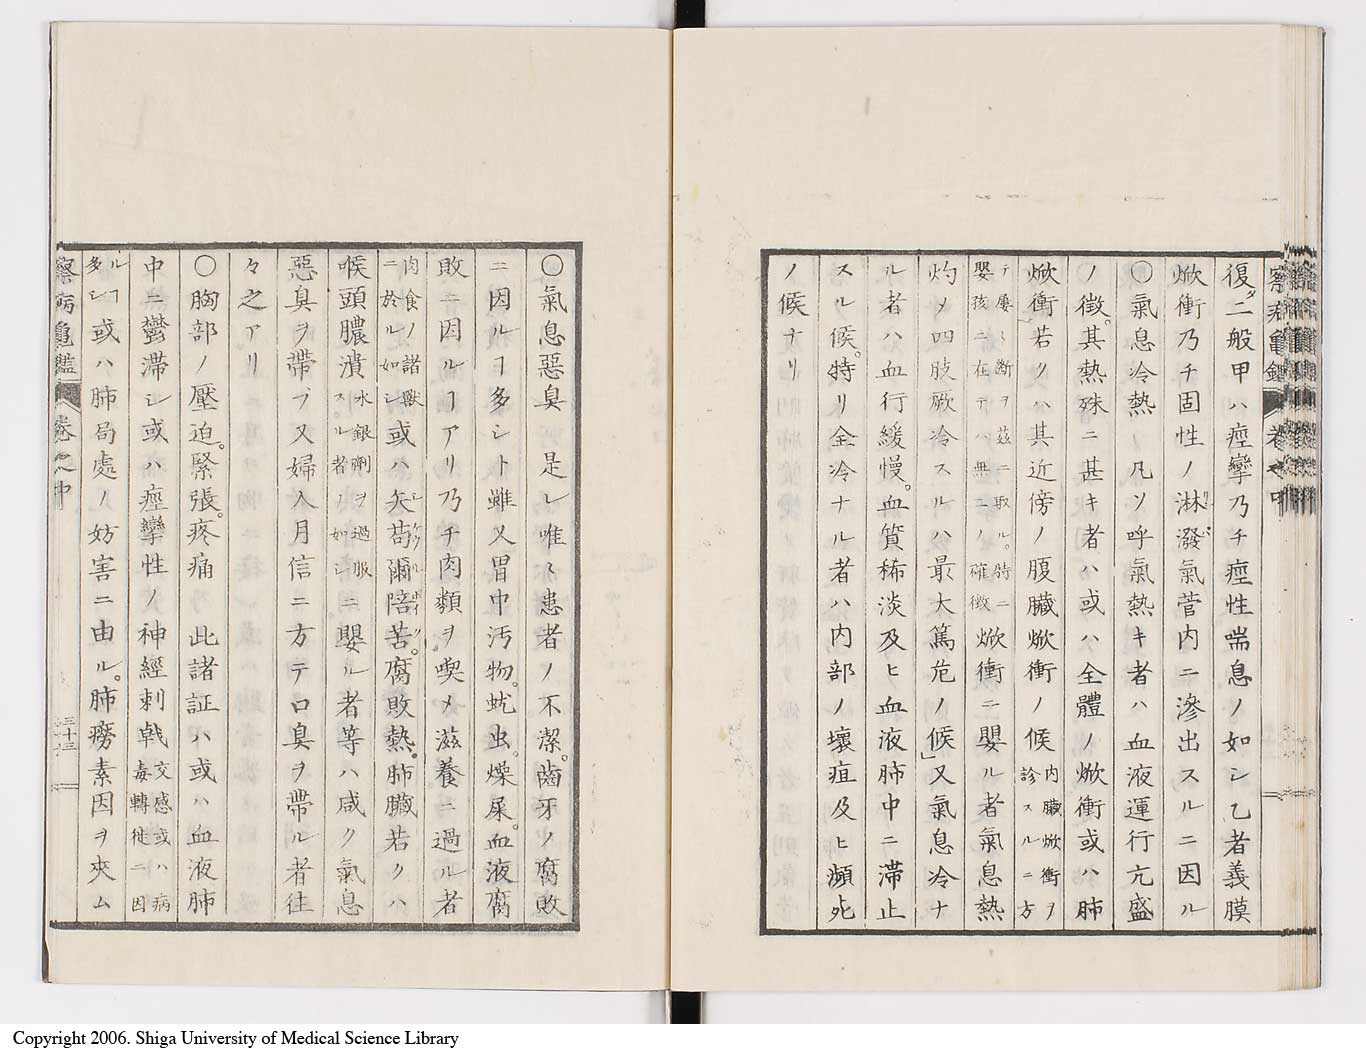 復ダ二般甲ハ痙攣乃チ痙性喘息ノ如シ乙者義膜
焮衝乃チ固性ノ淋潑氣管内ニ滲出スルニ因ル
〇氣息冷熱 凡ソ呼氣熱キ者ハ血液運行亢盛
ノ徴。其熱殊ニ甚キ者ハ或ハ全體ノ焮衝或ハ肺
焮衝若クハ其近傍ノ腹臓焮衝ノ候内臓焮衝ヲ診スルニ方
テ屢〻断ヲ茲ニ取ル。時ニ嬰孩ニ在テハ無二ノ確徴焮衝ニ嬰ル者氣息熱
灼〆四肢厥冷スルハ最大篤危ノ候」又氣息冷ナ
ル者ハ血行緩慢。血質稀淡及ヒ血液肺中ニ滞止
スル候。特リ全冷ナル者ハ内部ノ壊疽及ヒ瀕死
ノ候ナリ
察病亀鑑 巻之中
〇氣息惡臭 是レ唯〻患者ノ不潔。齒牙ノ腐敗
ニ因ルヿ多シト雖又胃中汚物。蚘虫。燥屎。血液腐
敗ニ因ルヿアリ乃チ肉類ヲ喫〆滋養ニ過ル者
肉食ノ諸獸ニ於ル如シ或ハ矢苟爾陪苦。腐敗熱。肺臓若クハ
喉頭膿潰ス。ル者水銀劑ヲ過服如シニ嬰ル者等ハ咸ク氣息
惡臭ヲ帶ブ又婦人月信ニ方テ口臭ヲ帶ル者往
々之アリ
〇胸部ノ壓迫。緊張。疼痛 此諸証ハ或ハ血液肺
中ニ鬱滞シ或ハ痙攣性ノ神經刺戟交感或ハ病毒轉徙ニ因
ルヿ多シ或ハ肺局處ノ妨害ニ由ル。肺癆素因ヲ夾ム
察病亀鑑 巻之中 三十三
Copyright 2006. Shiga University of Medical Science Library